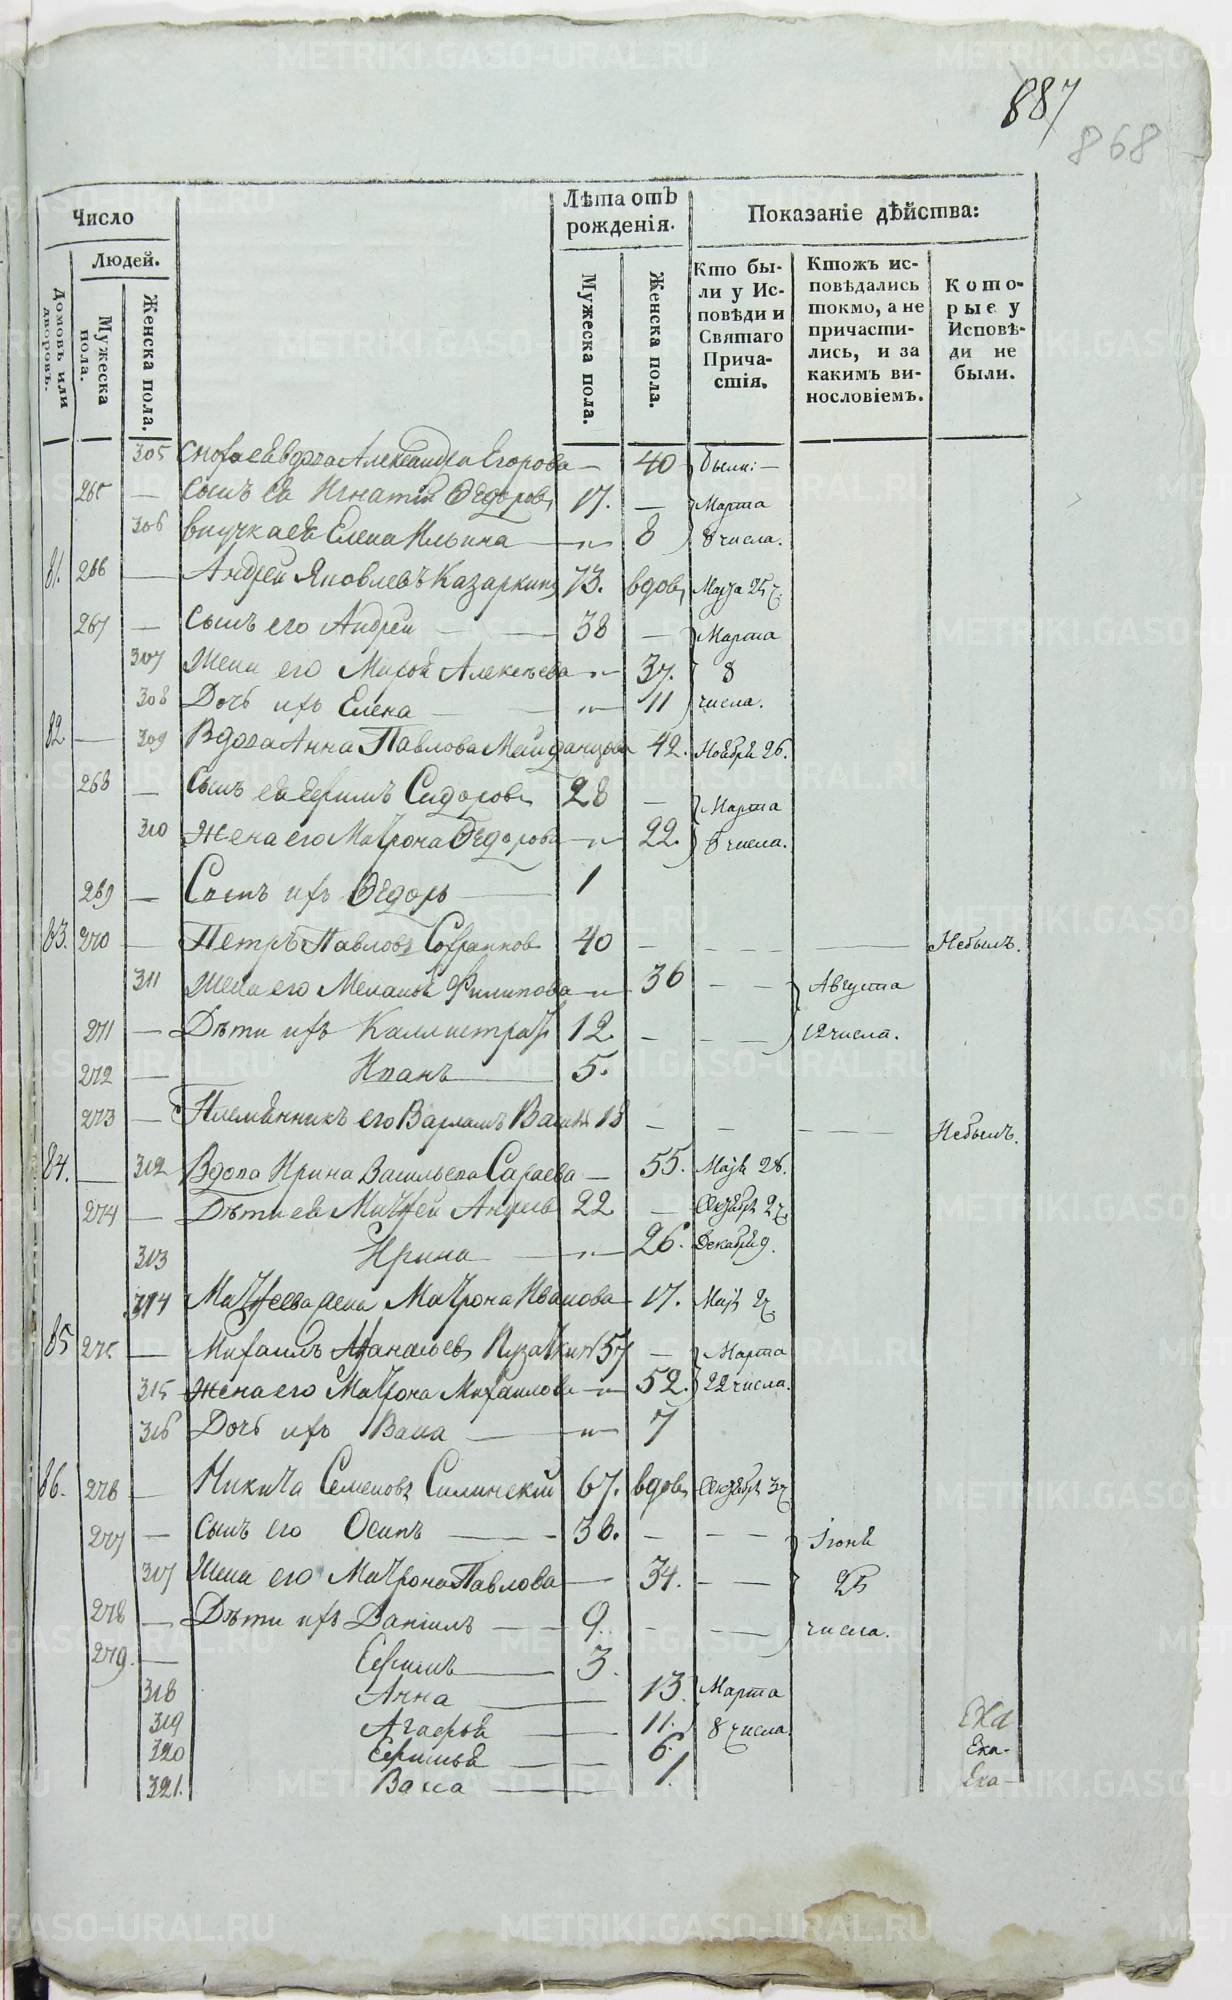 887
868
Число
Лѣта отъ рожденія.
Показаніе дѣйства:
Людей.
Домовъ или дворовъ.
Мужеска пола.
Женска пола.
Мужеска пола.
Женска пола.
Кто бы-
ли у Ис-
повѣди и
Святаго
Прича-
стія.
Ктожъ ис-
повѣдались
токмо, а не
причасти-
лись, и за
какимъ ви-
нословіемъ.
Кото-
рые у
Исповѣ-
ди не
были.
305 Сноха ея вдова Александра Егорова — 40 были: —
265 — Сынъ ея Игнатій Ѳедоровъ 17. — Марта
306 внучка ея Елена Ильина — 8 8 числа.
81. 266 — Андрей Яковлевъ Казаркинъ 73. вдовъ Марта 25
267 — Сынъ его Андрей — 38 — Марта
307 Жена его Алексѣева 37. 8
308 Дочь ихъ Елена — 11 числа.
82 — 309 Вдова Анна Павлова 42. Ноября 26.
268 — Сынъ ея Ефимъ Сидоровъ 28 — Марта
310 Жена его Матрона Ѳедорова 22. 8 числа.
269 — Сынъ ихъ Ѳедоръ — 1
83. 270 — Петръ Павловъ 40 — Небылъ.
311 Жена его Меланья Филипова 36 — — Августа
271 — Дѣти ихъ Каллистратъ 12. — — — 12 числа.
272 — Иванъ 5.
273 — Племянникъ его Варламъ 18 — — — Небылъ.
84. — 312 Вдова Ирина Васильева Сараева — 55. Маія 26.
274 — Дѣти ея Матѳей 22 — Октября 27
313 Ирина — 26. Декабря 9.
314 Матѳеева жена Матрона Иванова 17. Маія
85 275 — Михаилъ Аѳанасьевъ 57 — Марта
315 Жена его Матрона Михаилова 52. 22 числа.
316 Дочь ихъ Васса — 7
86. 276 — Никита Семеновъ Силинскій 67. вдовъ Октября
277 — Сынъ его Осипъ — 38. — — — Іюня
317 Жена его Матрона Павлова — 34. — — 25
278 — Дѣти ихъ Даніилъ — 9. — — — числа.
279. — Ефимъ — 3.
318 Анна — 13. Марта
319 Агафья — 11. 8 числа.
320 Ефимья — 6.
321. Васса — 1.